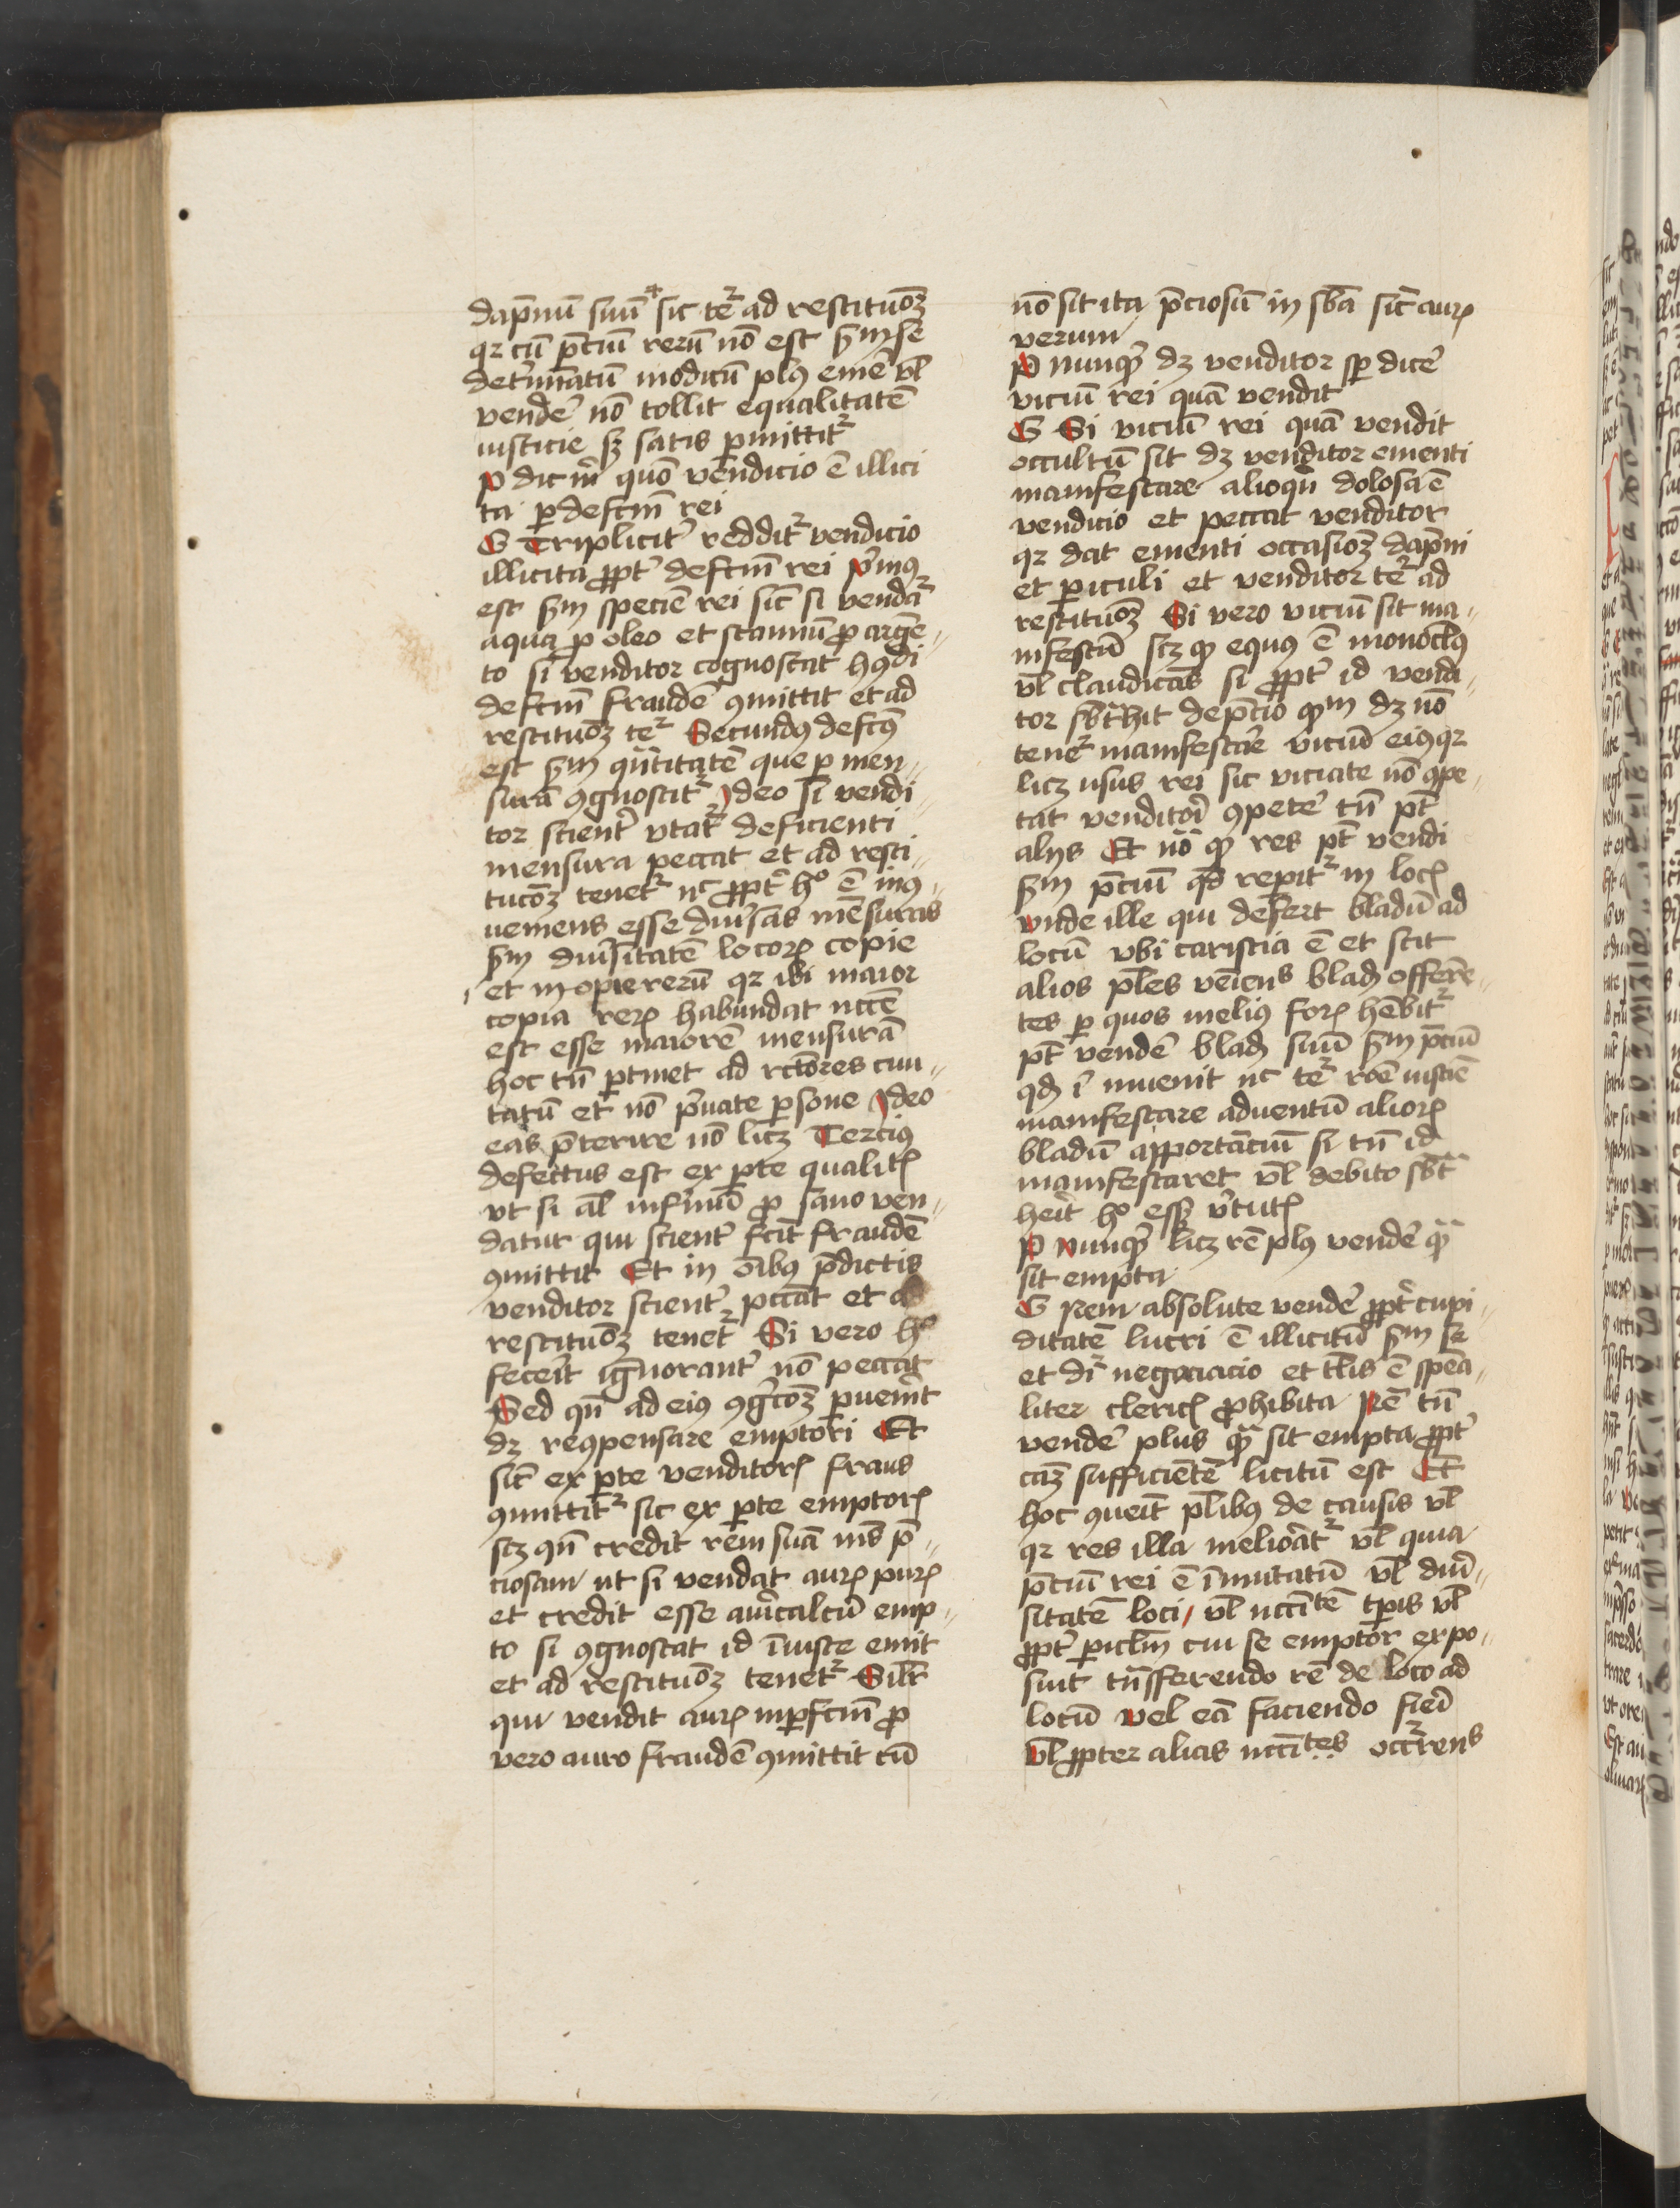 dapnū suū sic tet᷑ ad restituōꝫ
qꝛ cū p̄ciū rerū nō est s̄m se
det̓minatū modicū plꝰ eme᷑ vl̄
vende᷑ nō tollit equalitatē
iusticie sꝫ satis ꝑmittit᷑
P dic m̄ quō vendicio ē illici
ta ꝑ defctm̄ rei
G Triplicit̓ reddit᷑ vendicio
illicita ꝓpt̓ defctm̄ rei p̓mus
est s̄m speciē rei sic̄ si vendat᷑
aqua ꝓ oleo et stannū ꝓ argē„
to si venditor cognoscat hꝰdi
defctm̄ fraudē ꝯmittit et ad
restituōꝫ tet᷑ Secundꝰ defctꝰ
est s̄m qn̄titatē que ꝑ men„
surā ꝯgnoscit᷑ Ideo si vendi„
tor scient̓ vtat᷑ deficienti
mensura peccat et ad resti„
tucōꝫ tenet᷑ nc̄ ꝓpt̓ hͦ ē inꝯ„
ueniens esse diu̓sas mēsuras
s̄m diu̓sitatē locoꝝ copie
et inopie rerū qꝛ ibi maior
copia reꝝ habundat nccē
est esse maiorē mensurā
hoc tn̄ ꝑtinet ad rc̄tores ciui„
tatū et nō p̓uate ꝑsone Ideo
eas p̄terire nō licꝫ Tercius
defectus est ex ꝑte qualitꝭ
vt si al̄ infirmū ꝓ sano ven„
datur qui scient̓ fcit fraudē
ꝯmittit Et in oībꝰ p̄dictis
venditor scient̓ pccat et ad
restituōꝫ tenet᷑ Si vero hͦ
fecerit ignorant̓ nō peccat
Sed qn̄ ad eiꝰ ꝯgcōꝫ ꝑuenit̓
dꝫ reꝯpensare emptori Et
sic̄ ex ꝑte venditorꝭ fraus
ꝯmittit᷑ sic ex ꝑte emptorꝭ
scꝫ qn̄ credit rem suā min̄s p̄„
ciosam vt si vendat auꝝ puꝝ
et credit esse auricalcū emp„
to si ꝯgnoscat id īiuste emit
et ad restituōꝫ tenet᷑ Silr̄
qui vendit auꝝ inꝑfctm̄ ꝓ
vero auro fraudē ꝯmittit cū
nō sit ita p̄ciosū in sb̄a sic̄ auꝝ
verum
P nunqͣ dꝫ venditor sꝑ dice᷑
viciū rei quā vendit
G Si viciū rei quā vendit
occultū sit dꝫ venditor ementi
manifestare alioqn̄ dolosa ē
vendicio et peccat venditor
qꝛ dat ementi occasioꝫ dapni
et ꝑiculi et venditor tet᷑ ad
restituōꝫ Si vero viciū sit ma„
nifestū scꝫ qꝫ equus ē monoclꝰ
vl̄ claudicās si ꝓpt̓ id vendi„
tor sbt̓hit de p̄cio qm dꝫ nō
tenet᷑ manifestare viciū eiꝰ qꝛ
licꝫ usus rei sic viciate nō ꝯpe„
tat venditori ꝯpete᷑ tn̄ pt̄
alijs Et nō qꝫ res pt̄ vendi
s̄m p̄ciū qd̄ reꝑit᷑ in locꝭ
vnde ille qui defert bladū ad
locū vbi caristia ē et scit
alios pl̄es veniens bladꝭ offeren„
tes ꝑ quos meliꝰ foꝝ hēbit᷑
pt̄ vende᷑ bladꝭ suū s̄m p̄ciū
qd̄ ī inuenit nc̄ tet᷑ rōe iusticie
manifestare aduentū alioꝝ
bladū apportanciū si tn̄ id
manifestaret vl̄ debito sbt̓
heret hͦ esset v̓tutꝭ
P nunqͣ licꝫ rē plꝰ vende᷑ qͣ
sit empta
G Rem absolute vende᷑ ꝓpt̓ cupi„
ditatē lucri ē illicitū s̄m se
et dr̄ negociacio et tl̄is ē spēa„
liter clericꝭ ꝓhibita Rē tn̄
vende᷑ plus qͣ sit empta ꝓpt̓
cāꝫ sufficientē licitū est Et
hoc ꝯueit pl̄ibꝰ de causis vl̄
qꝛ res illa meliorat᷑ vl̄ quia
p̄ciū rei ē īmutatū vl̄ diu̓„
sitatē loci, vl̄ nccitatē tꝑis vl̄
ꝓpt̓ ꝑiclm̄ cui se emptor expo„
suit tn̄sferendo rē de loco ad
locū vel eā faciendo fieri
vl̄ ꝓpter alicꝰ nccitates occ᷑rens